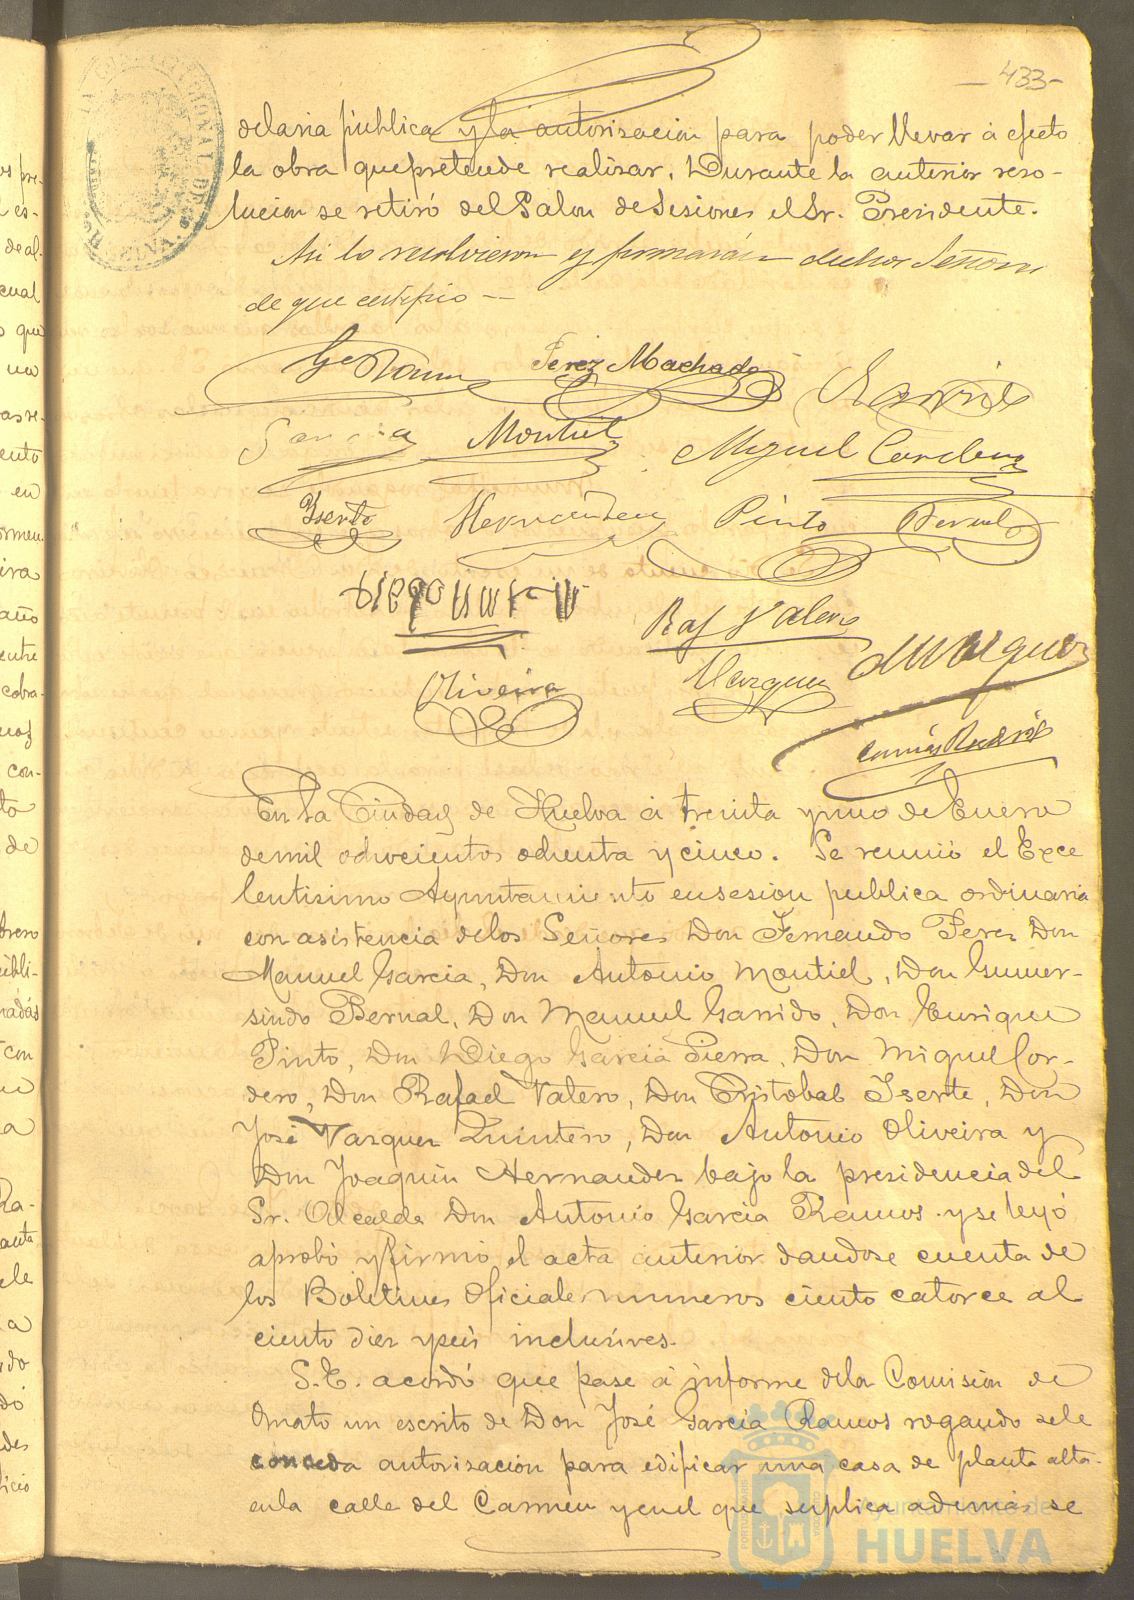 -433-
delaria pública y la autorisación para poder llevar á efecto
la obra que pretende realizar. Durante la anterior reso-
lucion se retiró del Salon de Sesiones el Sr. Presidente.
Asi lo resolvieron y firmarán dichos Señores
de que certifico --
Ga Ramos Perez Machado Garrido
Garcia Montiel Miguel Cordero
Yserte Hernandez Pinto Bernal
Raf Valero
Oliveira Vazquez
En la Ciudad de Huelva á treinta y uno de Enero
de mil ochocientos ochenta y cinco. Se reunió el Exce
lentisimo Ayuntamiento en sesion publica ordinaria
con asistencia de los Señores Don Fernando Perez Don
Manuel Garcia, Don Antonio Montiel, Don Gumer-
sindo Bernal, Don Manuel Garrido, Don Enrique
Pinto, Don Diego Garcia Sierra, Don Miguel Cor-
dero, Don Rafael Valero, Don Cristobal Iserte, Don
José Vazquez Quintero, Don Antonio Oliveira y
Don Joaquin Hernandez bajo la presidencia del
Sr. Alcalde Don Antonio Garcia Ramos y se leyó
aprobó y firmó el acta anterior dandose cuenta de
los Boletines Oficiales numeros ciento catorce al
ciento diez y seis inclusives.
S.E. acordó que pase á informe de la Comision de
Ornato un escrito de Don José Garcia Ramos rogando se le
conceda autorizacion para edificar una casa de planta alta
en la calle del Carmen y en el que suplica además se
Ayuntamiento de
HUELVA